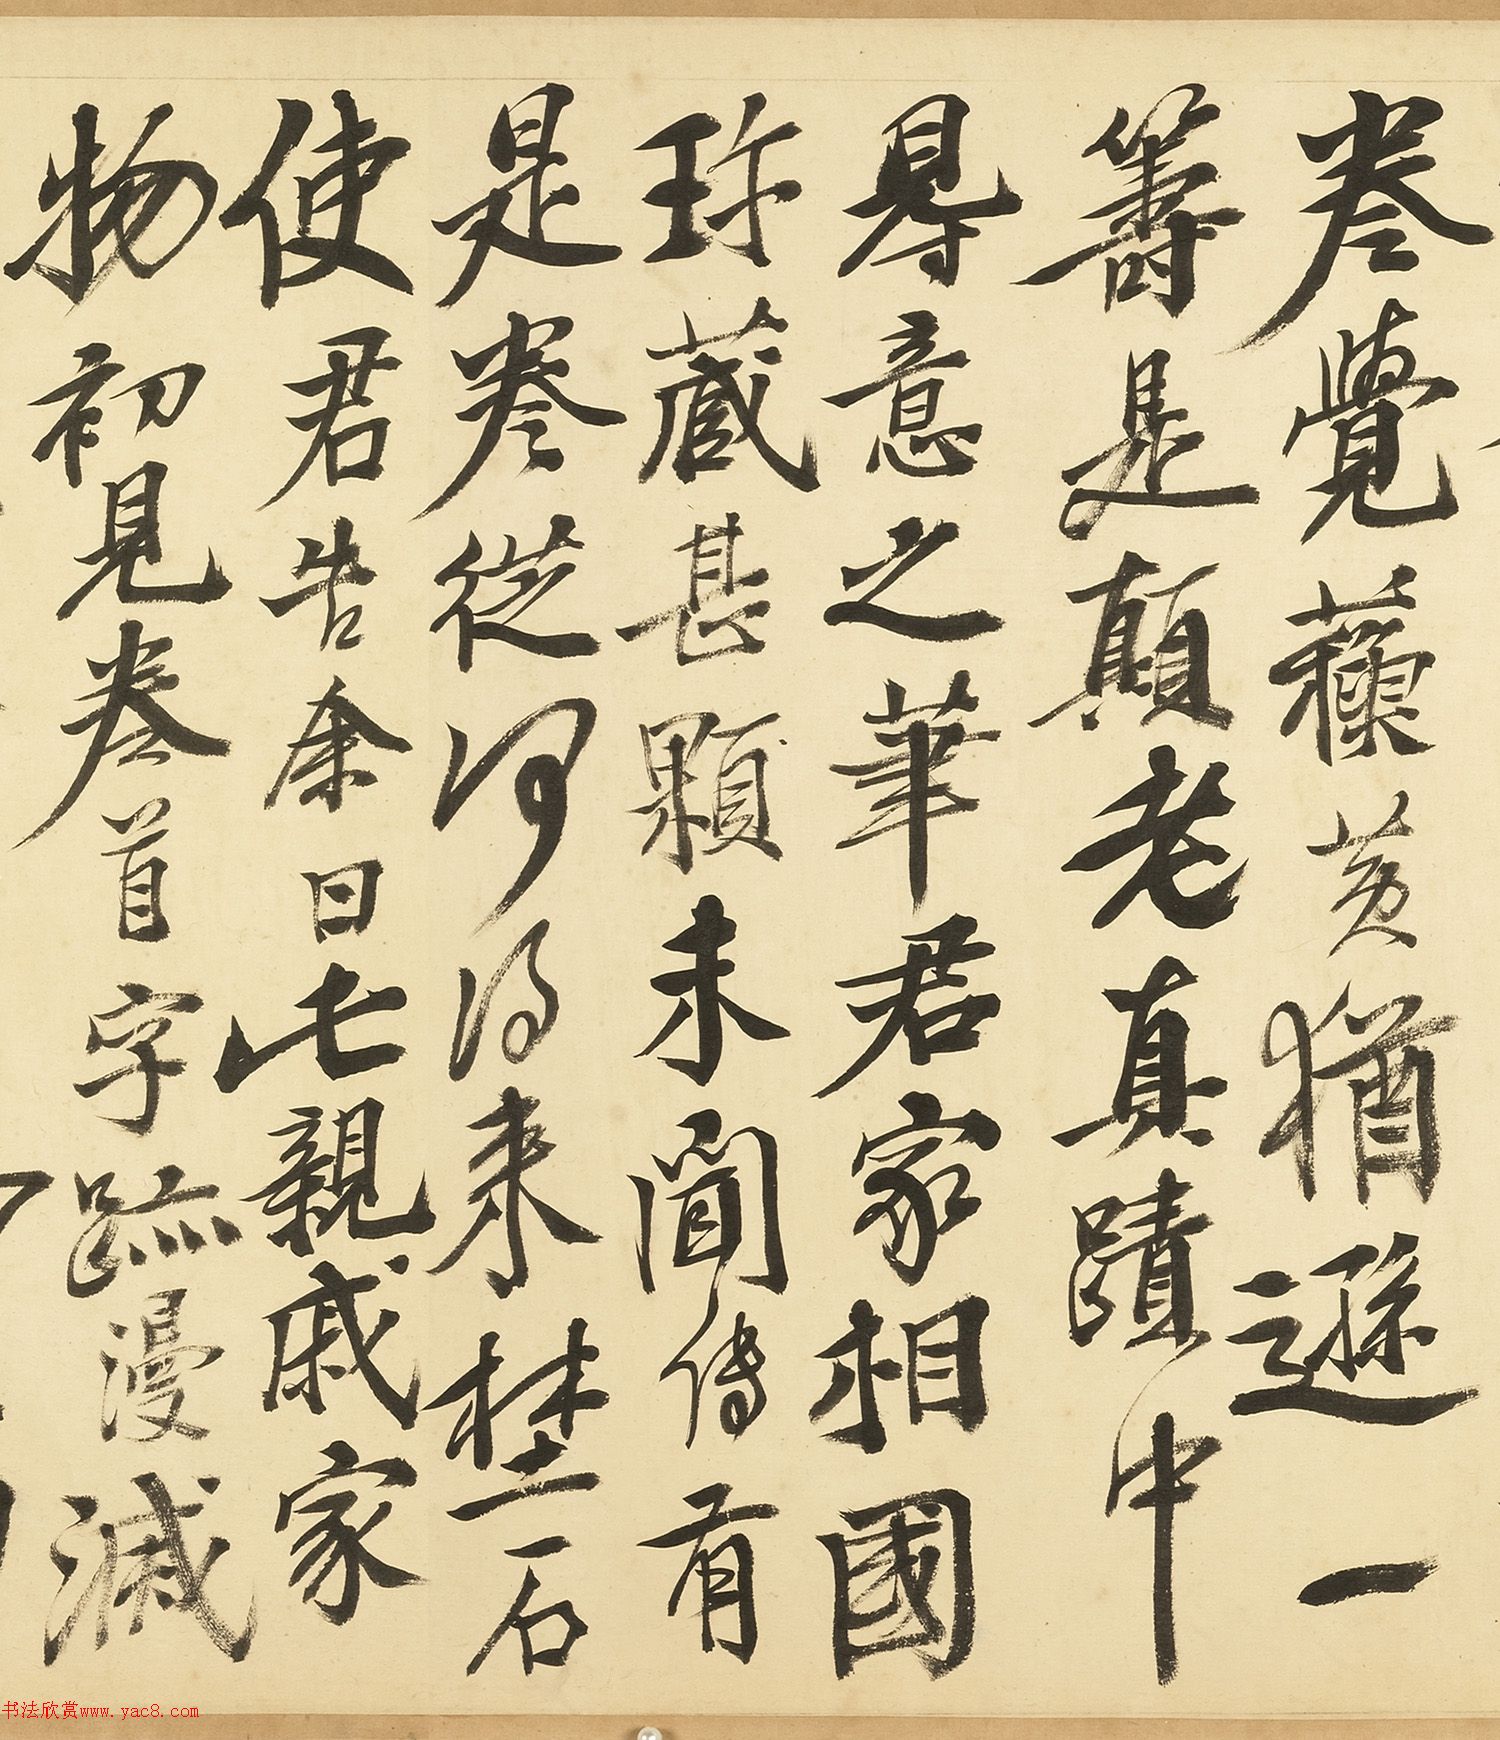 卷覺蘓黄猶遜一
籌是顛老真蹟中
得意之筆君家相國
珍藏甚顆未聞傳有
是卷從何得來埜石
使君告余曰此親戚家
物初見卷首字跡漫滅
书法欣赏www.yac8.com